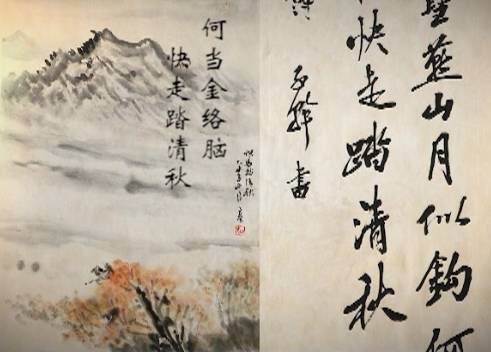 何当金络脑
快走踏清秋
燕山月似鉤何
快走踏清秋
書